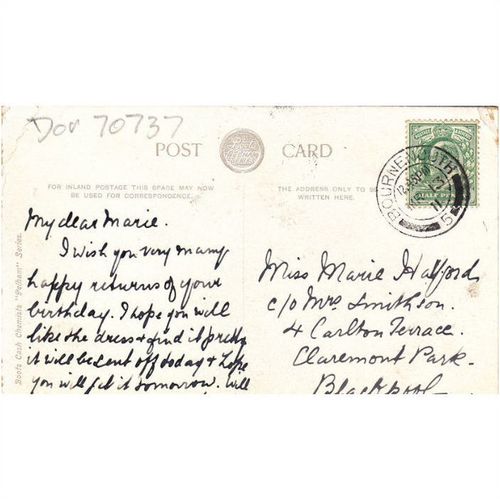 Dor 70737
POST CARD
FOR INLAND POSTAGE THIS SPACE MAY NOW
BE USED FOR CORRESPONDENCE.
THE ADDRESS ONLY TO BE
WRITTEN HERE.
BOURNEMOUTH
My dear Marie.
I wish you very many
happy returns of your
birthday. I hope you will
like the dress & find it pretty
it will be sent off today & hope
you will get it tomorrow. Will
Miss Marie Halford
c/o Mrs Smithson
4 Carlton Terrace.
Claremont Park.
Blackpool
Boots Cash Chemists "Pelham" Series.